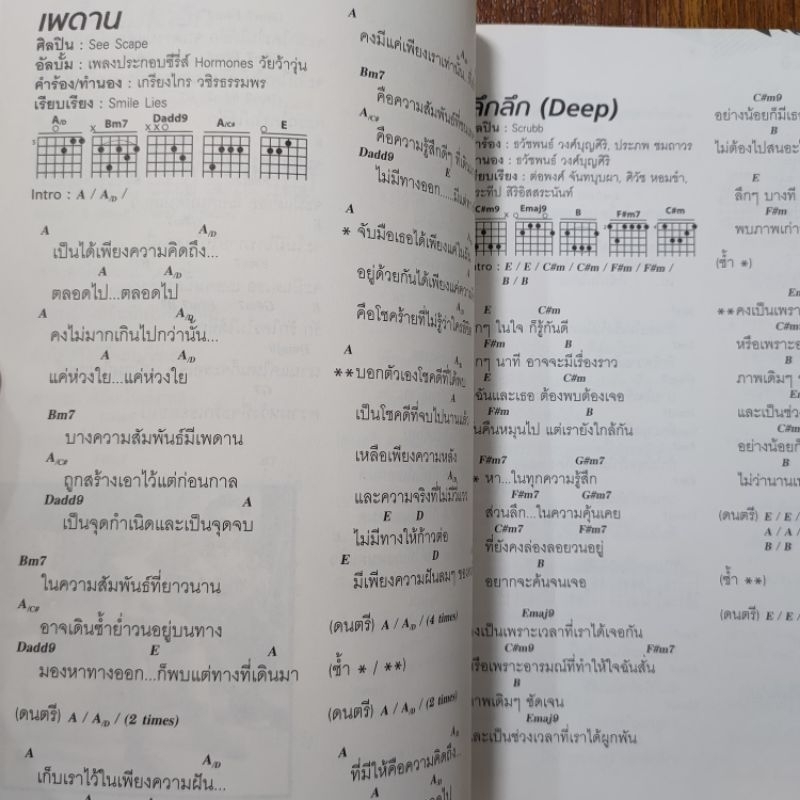 เพดาน
ศิลปิน : See Scape
อัลบั้ม : เพลงประกอบซีรี่ส์ Hormones วัยว้าวุ่น
คำร้อง/ทำนอง : เกรียงไกร วชิรธรรมพร
เรียบเรียง : Smile Lies
A/D Bm7 Dadd9 A/C# E
Intro : A / A/D /
A A/D
เป็นได้เพียงความคิดถึง...
A A/D
ตลอดไป...ตลอดไป
A A/D
คงไม่มากเกินไปกว่านั้น...
A A/D
แค่ห่วงใย...แค่ห่วงใย
Bm7
บางความสัมพันธ์มีเพดาน
A/C#
ถูกสร้างเอาไว้แต่ก่อนกาล
Dadd9 A
เป็นจุดกำเนิดและเป็นจุดจบ
Bm7
ในความสัมพันธ์ที่ยาวนาน
A/C#
อาจเดินซ้ำย่ำวนอยู่บนทาง
Dadd9 E A
มองหาทางออก...ก็พบแต่ทางที่เดินมา
(ดนตรี) A / A/D / (2 times)
A A/D
เก็บเราไว้ในเพียงความฝัน...
A
คงมีแค่เพียงเราเท่านั้น
Bm7
คือความสัมพันธ์
A/C#
คือความรู้สึกดีๆ
Dadd9 E
ไม่มีทางออก
A
* จับมือเธอได้เพียงแค่ในฝัน
อยู่ด้วยกันได้เพียง
คือโชคร้ายที่ไม่รู้ว่า
A
**บอกตัวเองโชคดีที่ได้พบ
A
เป็นโชคดีที่จบไปนานแล้ว
เหลือเพียงความหลัง
และความจริงที่ไม่มี
E D
ไม่มีทางให้ก้าวต่อ
E D
มีเพียงความฝันลมๆ
(ดนตรี) A / A/D / (4 times)
(ซ้ำ * / **)
(ดนตรี) A / A/D / (2 times)
A
ที่มีให้คือความคิดถึง...
A
(Deep)
: Scrubb
: ธวัชพันธ์ วงศ์บุญศิริ, ประภพ ชมถาวร
: ธวัชพันธ์ วงศ์บุญศิริ
: ต่อพงศ์ จันทบุบผา, ศิวัช หอมขำ,
สิริอิสสระนันท์
C#m9 Emaj9 B F#m7 C#m
: E / E / C#m / C#m / F#m / F#m /
B / B
E C#m
ในใจ ก็รู้กันดี
F#m B
นาที อาจจะมีเรื่องราว
E C#m
ฉันและเธอ ต้องพบต้องเจอ
F#m B
คืนหมุนไป แต่เรายังใกล้กัน
F#m7 G#m7
* หา...ในทุกความรู้สึก
F#m7 G#m7
ส่วนลึก...ในความคุ้นเคย
C#m7 F#m7
ที่ยังคงล่องลอยวนอยู่
B
อยากจะค้นจนเจอ
Emaj9
เป็นเพราะเวลาที่เราได้เจอกัน
C#m9 F#m7
หรือเพราะอารมณ์ที่ทำให้ใจฉันสั่น
B
ภาพเดิมๆ ชัดเจน
Emaj9
และเป็นช่วงเวลาที่เราได้ผูกพัน
C#m9
อย่างน้อยก็มีเธอ
B
ไม่ต้องไปสนอะไร
E
ลึกๆ บางที
F#m
พบภาพเก่า
(ซ้ำ *)
**คงเป็นเพราะ
C#m
หรือเพราะ
B
ภาพเดิมๆ
และเป็นช่วง
C#m
อย่างน้อย
B
ไม่ว่านาน
(ดนตรี) E / E /
A / A /
B / B
(ซ้ำ **)
(ดนตรี) E / E /